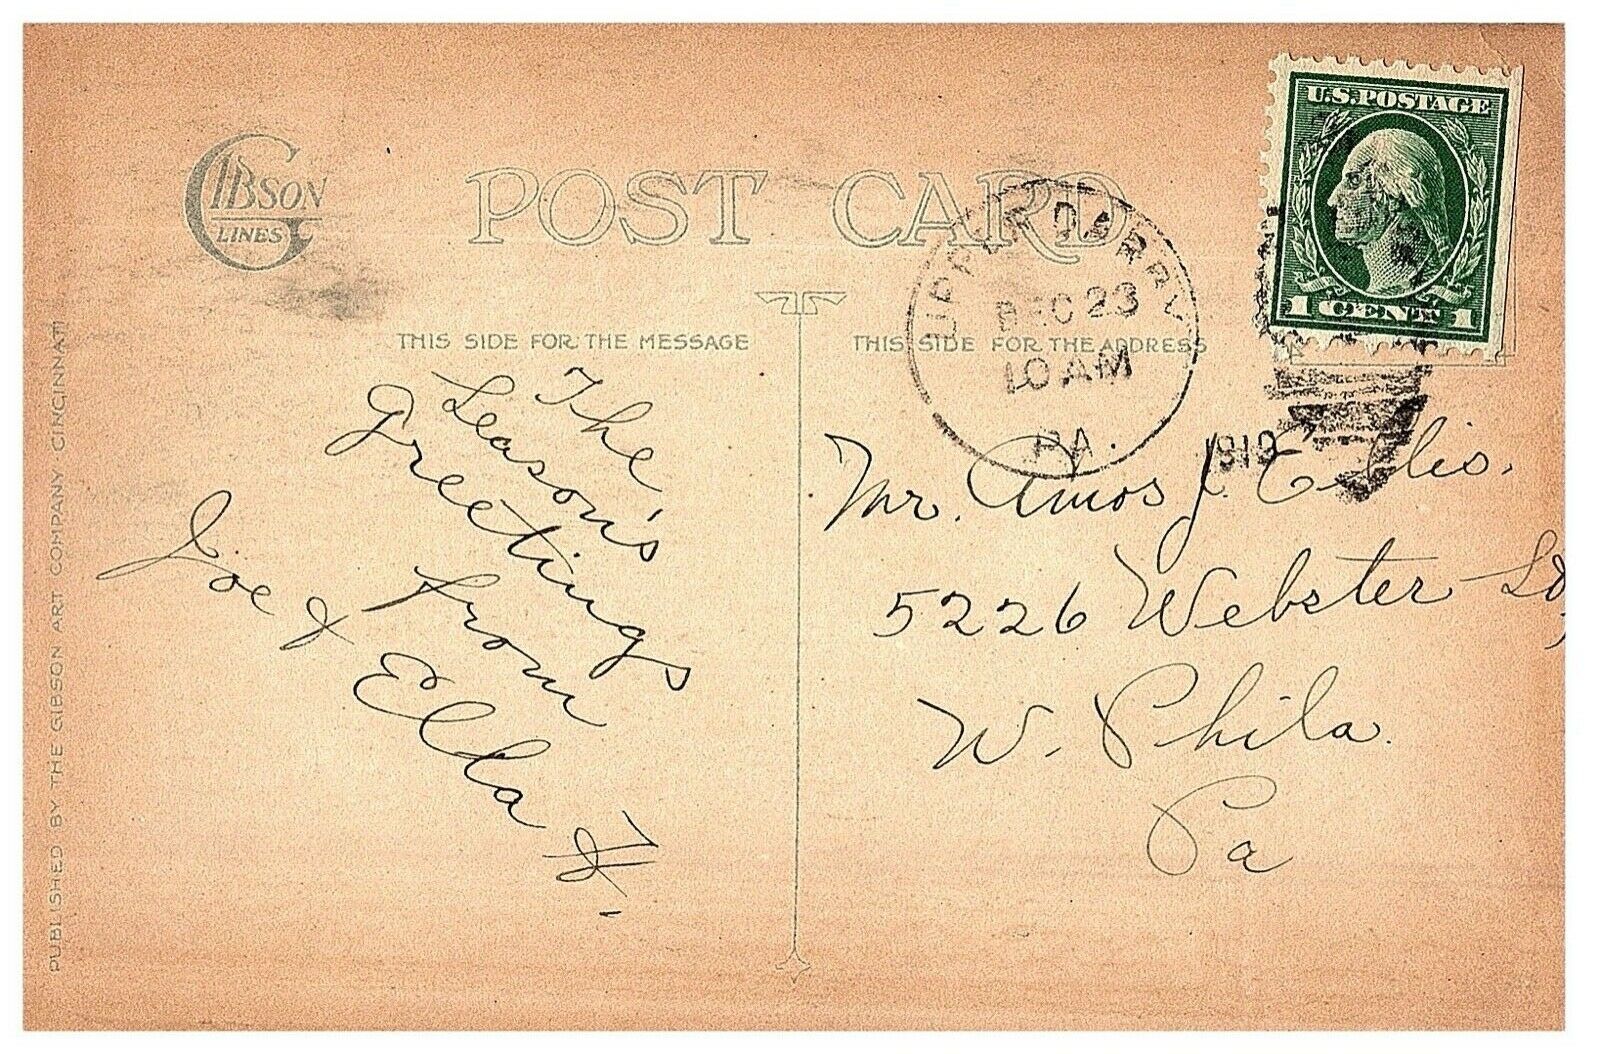 GIBSON
LINES
POST CARD
U.S. POSTAGE
1 CENT 1
UPPER DARBY
DEC 23
10 AM
PA.
1919
THIS SIDE FOR THE MESSAGE
THIS SIDE FOR THE ADDRESS
The
Season's
Greetings
from
Joe & Ella H.
Mr. Amos J. Ellis.
5226 Webster
W. Phila.
Pa
PUBLISHED BY THE GIBSON ART COMPANY CINCINNATI